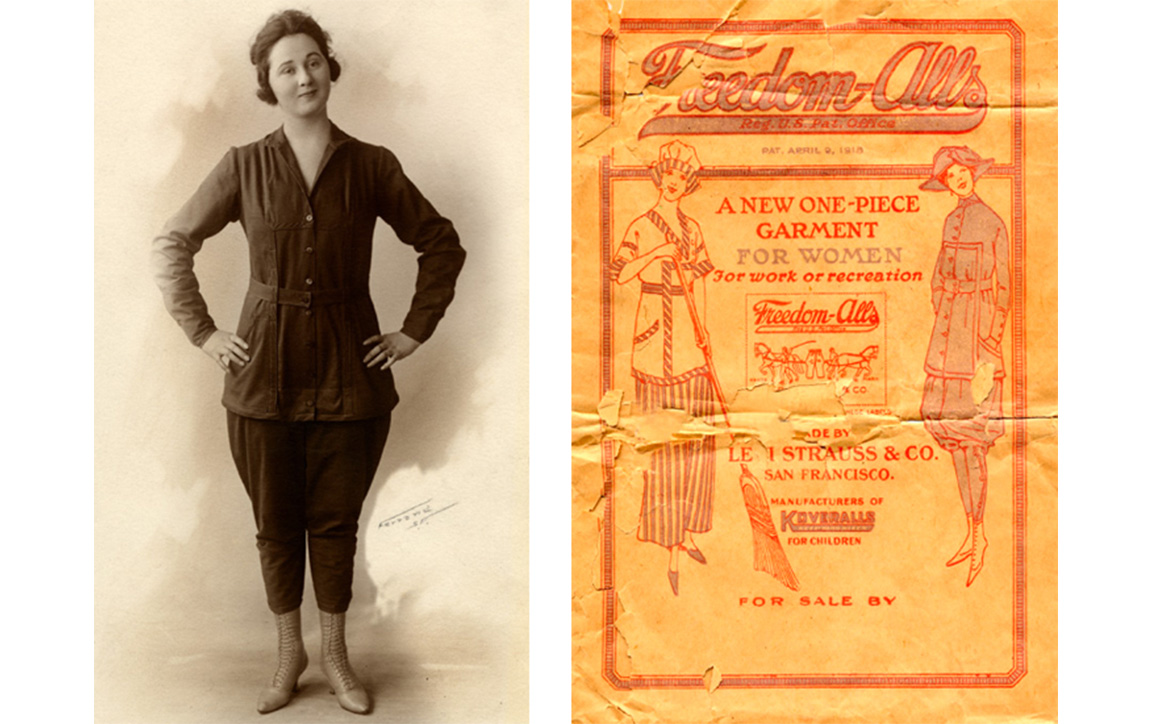 Freedom-Alls
Reg. U.S. Pat. Office
PAT. APRIL 9, 1918
A NEW ONE-PIECE
GARMENT
FOR WOMEN
For work or recreation
Freedom-Alls
& CO.
DE BY
LE I STRAUSS & CO.
SAN FRANCISCO.
MANUFACTURERS OF
KOVERALLS
FOR CHILDREN
FOR SALE BY